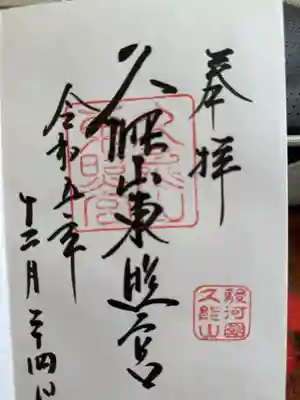 奉拝
駿河國
久能山
久能山東照宮
令和五年
十二月二十四日